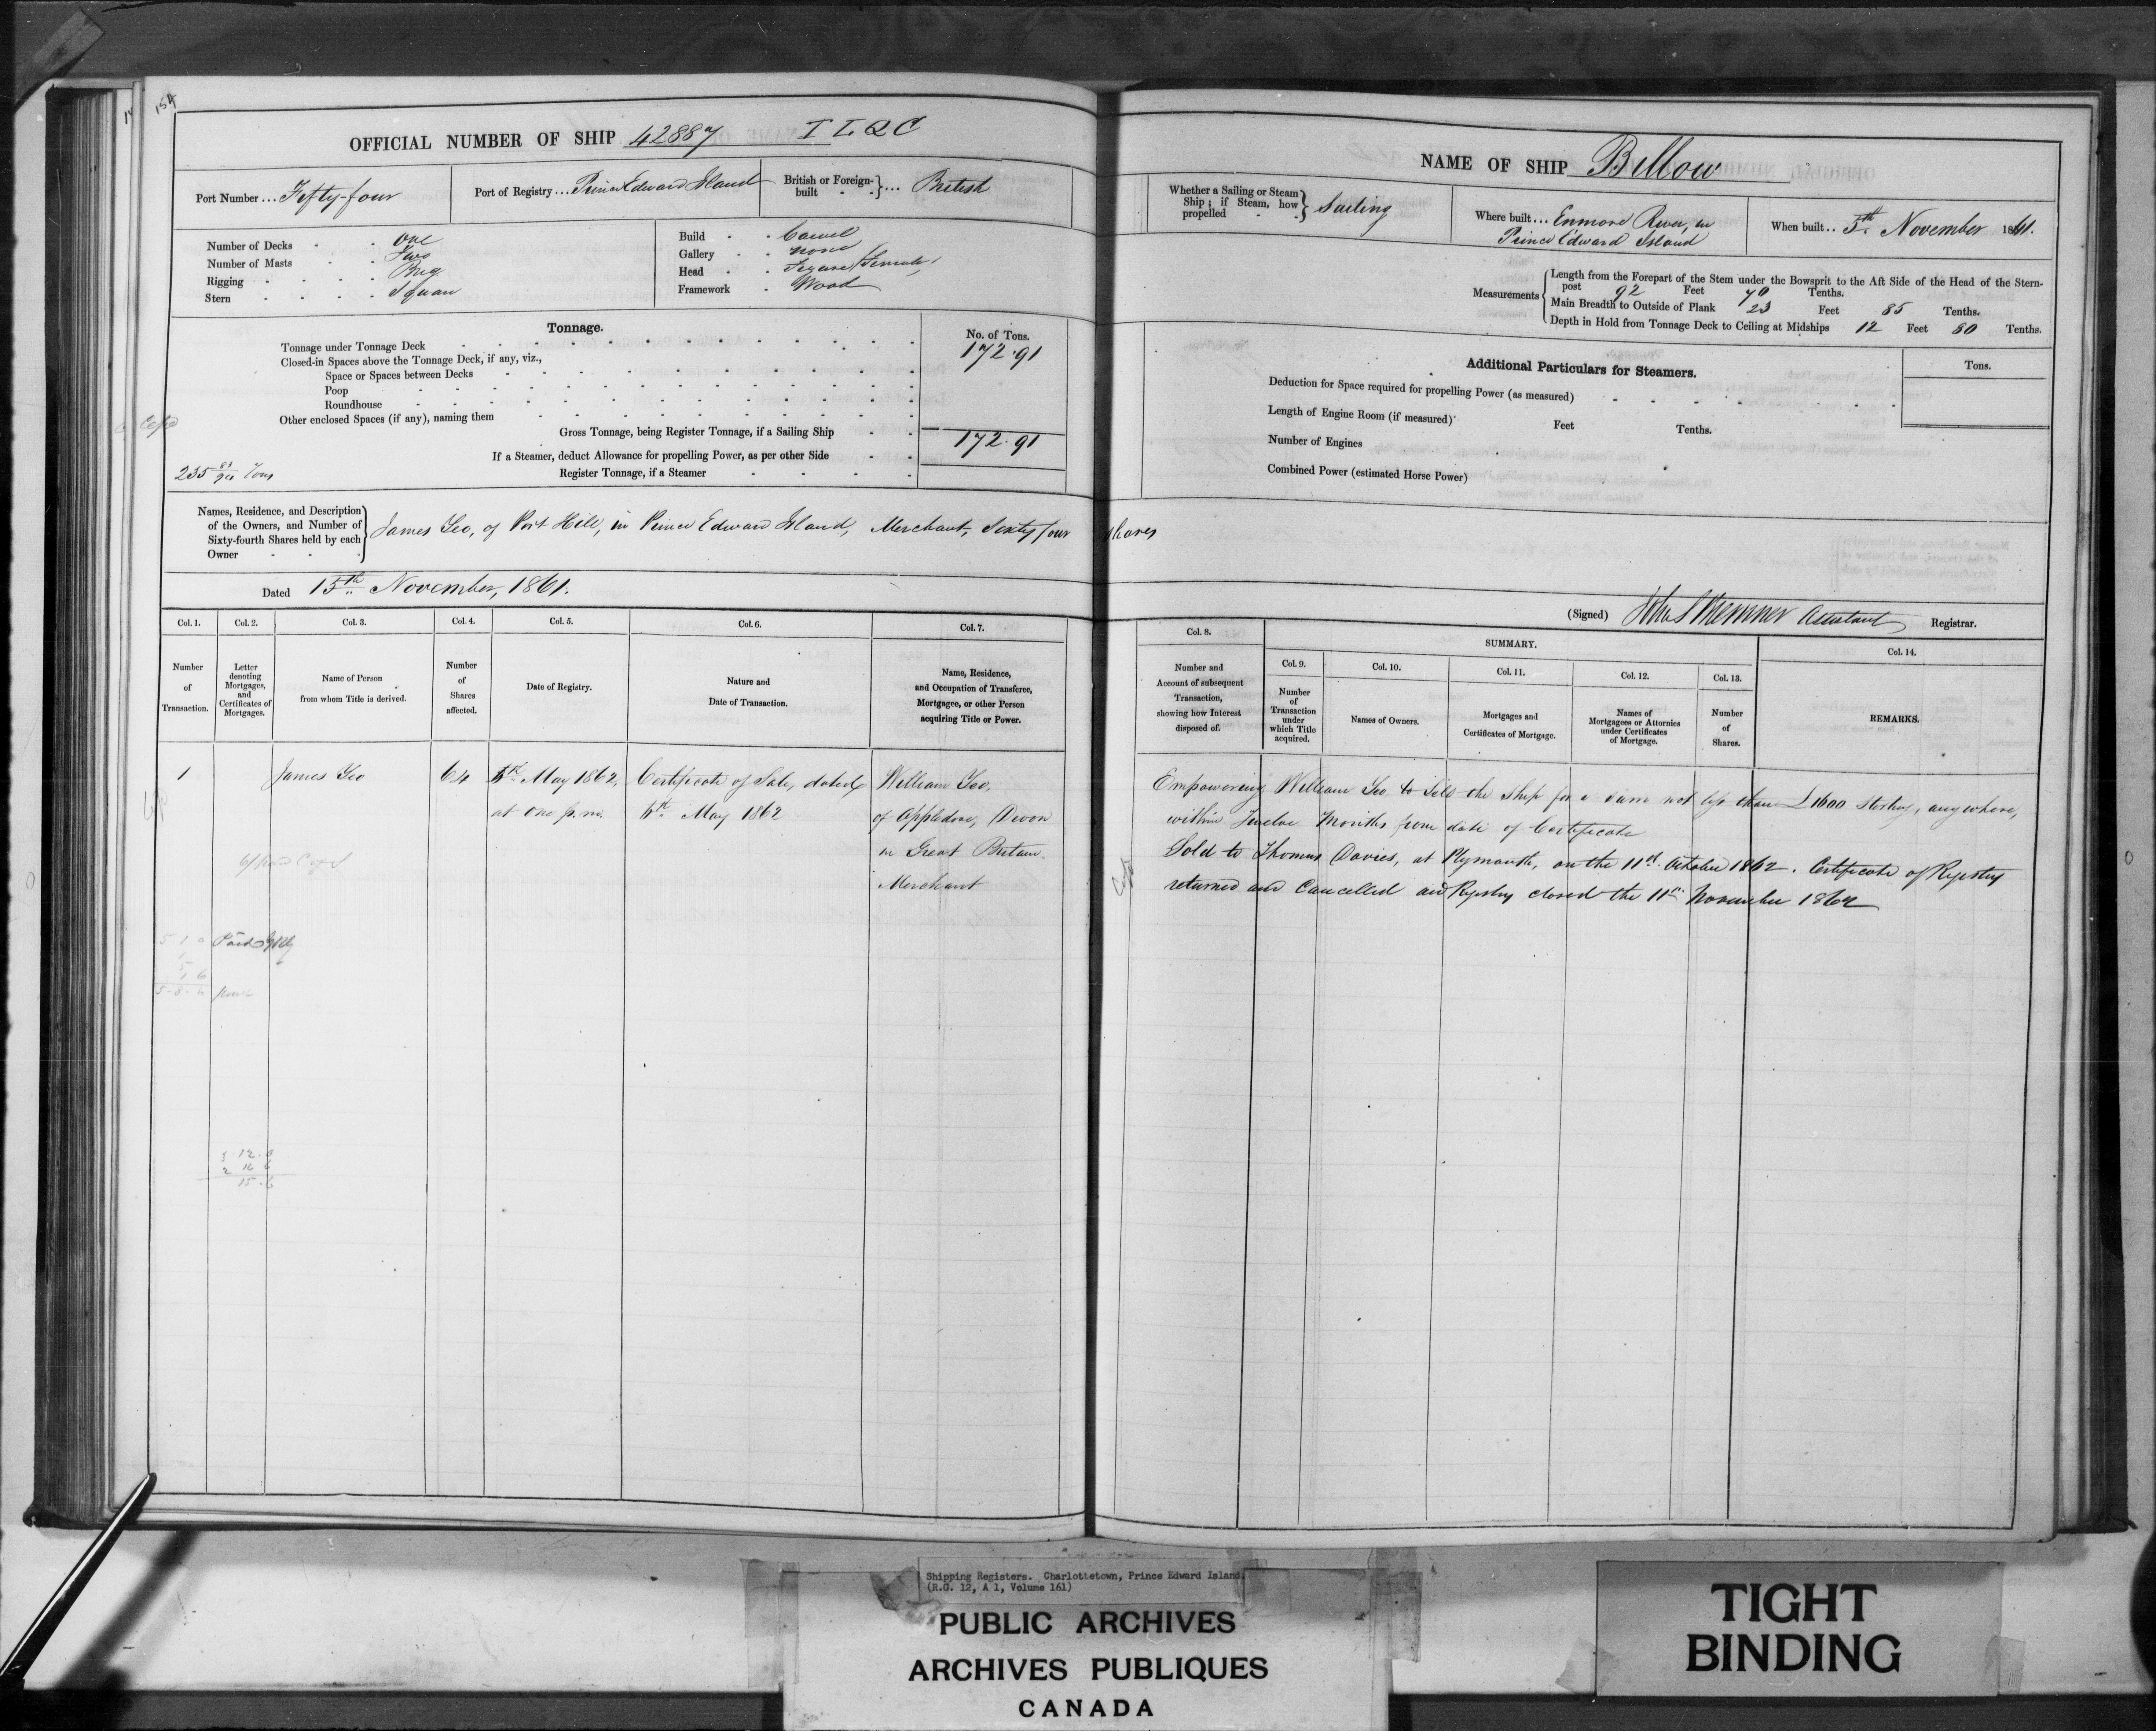 154
OFFICIAL NUMBER OF SHIP 42887 T L Q C
Port Number ... Fifty-four
Port of Registry ... Prince Edward Island
British or Foreign-built ... British
Number of Decks - - One
Number of Masts - - Two
Rigging - - - - Brig
Stern - - - - Square
Build - - Carvel
Gallery - - None
Head - - Figure (Female)
Framework - Wood
Tonnage.
No. of Tons.
Tonnage under Tonnage Deck 172.91
Closed-in Spaces above the Tonnage Deck, if any, viz.,
Space or Spaces between Decks
Poop
Roundhouse
Other enclosed Spaces (if any), naming them
Gross Tonnage, being Register Tonnage, if a Sailing Ship 172.91
If a Steamer, deduct Allowance for propelling Power, as per other Side
Register Tonnage, if a Steamer
235 83/94 Tons
Names, Residence, and Description of the Owners, and Number of Sixty-fourth Shares held by each Owner
James Yeo, of Port Hill, in Prince Edward Island, Merchant, Sixty four shares
Dated 15th November, 1861.
Col. 1. Col. 2. Col. 3. Col. 4. Col. 5. Col. 6. Col. 7.
Number of Transaction.
Letter denoting Mortgages, and Certificates of Mortgages.
Name of Person from whom Title is derived.
Number of Shares affected.
Date of Registry.
Nature and Date of Transaction.
Name, Residence, and Occupation of Transferee, Mortgagee, or other Person acquiring Title or Power.
1 James Yeo 64 May 1862, Certificate of Sale, dated William Yeo,
at one p.m. May 1862 of Appledore, Devon
in Great Britain.
Merchant
5 1 0
1
5
1 6
5-8-6
3 12.0
2 16 6
15.6
NAME OF SHIP Billow
Whether a Sailing or Steam Ship; if Steam, how propelled Sailing
Where built ... Enmore River, in
Prince Edward Island
When built .. 5th November 1861.
Measurements
Length from the Forepart of the Stem under the Bowsprit to the Aft Side of the Head of the Stern-
post 92 Feet 70 Tenths.
Main Breadth to Outside of Plank 23 Feet 85 Tenths.
Depth in Hold from Tonnage Deck to Ceiling at Midships 12 Feet 80 Tenths.
Additional Particulars for Steamers.
Tons.
Deduction for Space required for propelling Power (as measured)
Length of Engine Room (if measured) Feet Tenths.
Number of Engines
Combined Power (estimated Horse Power)
(Signed) Assistant Registrar.
Col. 8.
SUMMARY.
Col. 9. Col. 10. Col. 11. Col. 12. Col. 13. Col. 14.
Number and Account of subsequent Transaction, showing how Interest disposed of.
Number of Transaction under which Title acquired.
Names of Owners.
Mortgages and Certificates of Mortgage.
Names of Mortgagees or Attornies under Certificates of Mortgage.
Number of Shares.
REMARKS.
Empowering William Yeo to Sell the Ship for a sum not less than £1600 Sterling, anywhere,
within Twelve Months from date of Certificate
Sold to Thomas Davies, at Plymouth, on the 11th October 1862. Certificate of Registry
returned and Cancelled and Registry closed the 11th November 1862
Shipping Registers. Charlottetown, Prince Edward Island.
(R.G. 12, A 1, Volume 161)
PUBLIC ARCHIVES
ARCHIVES PUBLIQUES
CANADA
TIGHT
BINDING